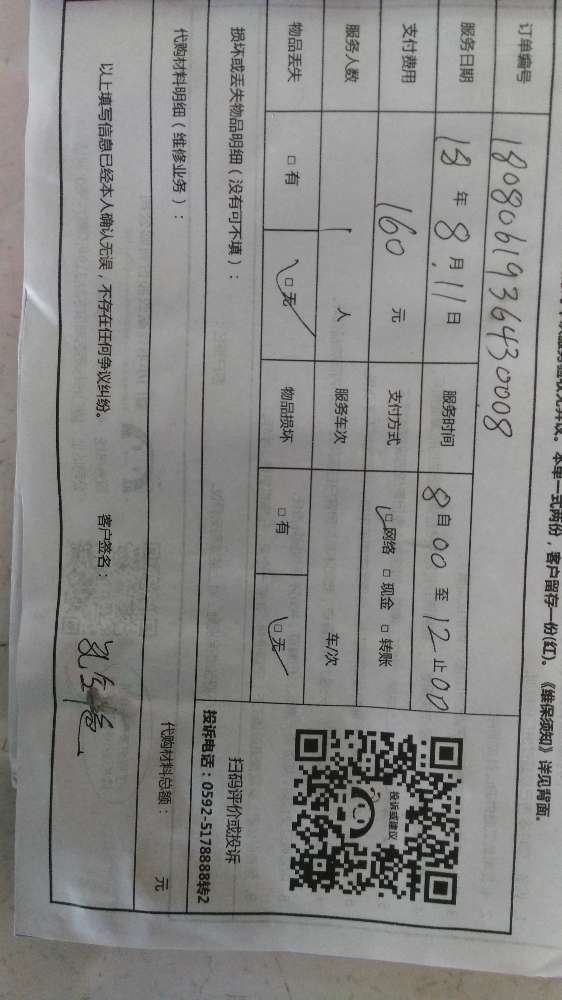 服务签收无异议。本单一式两份，客户留存一份(红)。《维保须知》详见背面.
订单编号 18080619364430008
服务日期 18 年 8 月 11 日 服务时间 8 自 00 至 12 止 00
支付费用 160 元 支付方式 □网络 □现金 □转账
服务人数 1 人 服务车次 车/次
物品丢失 □有 □无 物品损坏 □有 □无
损坏或丢失物品明细（没有可不填）：
投诉或建议
扫码评价或投诉
投诉电话：0592-5178888转2
代购材料明细（维修业务）： 代购材料总额： 元
以上填写信息已经本人确认无误，不存在任何争议纠纷。 客户签名：